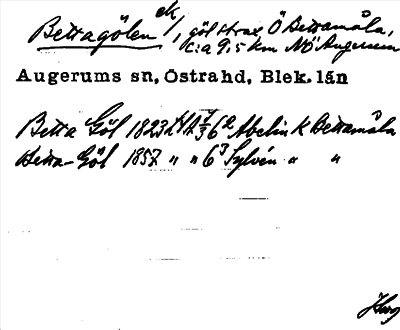 Bettagölen ek/, göl strax Ö Bettamåla,
c:a 9,5 km NÖ Augerum
Augerums sn, Östrahd, Blek. län
Betta Göl 1823 6² Abelin K Bettamåla
Betta-Göl 1857 " " 6³ Sylvén " "